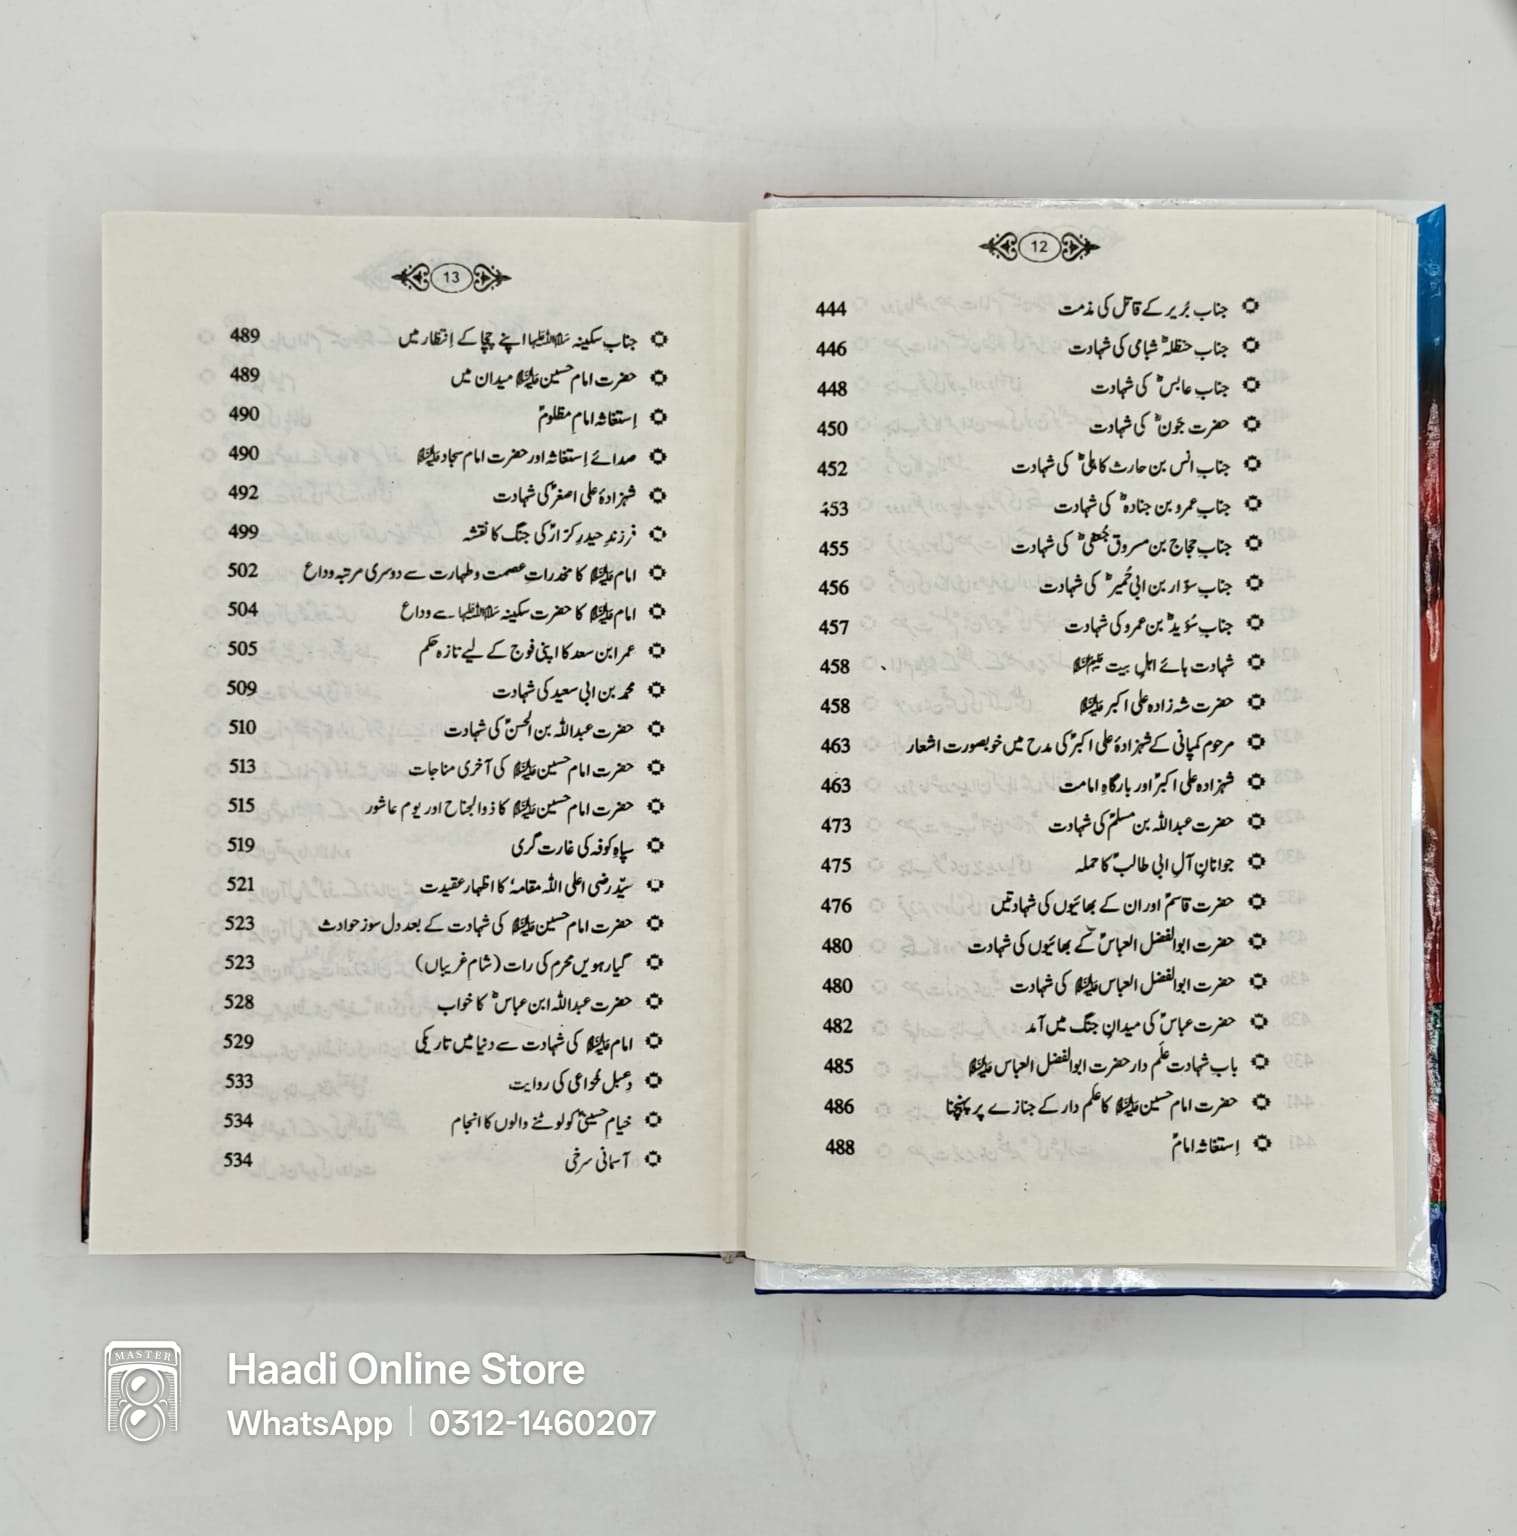 12
جناب بُریر کے قاتل کی مذمت 444
جناب حنظلہؓ شبامی کی شہادت 446
جناب عابسؓ کی شہادت 448
حضرت جَونؓ کی شہادت 450
جناب انس بن حارث کاہلیؓ کی شہادت 452
جناب عمرو بن جنادہؓ کی شہادت 453
جناب حجاج بن مسروق جُعفیؓ کی شہادت 455
جناب سوّار بن ابی حُمیرؓ کی شہادت 456
جناب سُویدؓ بن عمرو کی شہادت 457
شہادت ہائے اہلِ بیت علیہم السلام 458
حضرت شہزادہ علی اکبر علیہ السلام 458
مرحوم کمپانی کے شہزادۂ علی اکبرؑ کی مدح میں خوبصورت اشعار 463
شہزادہ علی اکبرؑ اور بارگاہِ امامت 463
حضرت عبداللہ بن مسلمؑ کی شہادت 473
جوانانِ آلِ ابی طالبؑ کا حملہ 475
حضرت قاسمؑ اور ان کے بھائیوں کی شہادتیں 476
حضرت ابوالفضل العباسؑ کے بھائیوں کی شہادت 480
حضرت ابوالفضل العباس علیہ السلام کی شہادت 480
حضرت عباسؑ کی میدانِ جنگ میں آمد 482
باب شہادت علَم دار حضرت ابوالفضل العباس علیہ السلام 485
حضرت امام حسین علیہ السلام کا علَم دار کے جنازے پر پہنچنا 486
اِستغاثہ امامؑ 488
13
جناب سکینہ سلام اللہ علیہا اپنے چچا کے اِنتظار میں 489
حضرت امام حسین علیہ السلام میدان میں 489
اِستغاثہ امامِ مظلومؑ 490
صدائے اِستغاثہ اور حضرت امام سجاد علیہ السلام 490
شہزادۂ علی اصغرؑ کی شہادت 492
فرزندِ حیدرِ کرّارؑ کی جنگ کا نقشہ 499
امام علیہ السلام کا مخدراتِ عصمت و طہارت سے دوسری مرتبہ وداع 502
امام علیہ السلام کا حضرت سکینہ سلام اللہ علیہا سے وداع 504
عمر ابن سعد کا اپنی فوج کے لیے تازہ حکم 505
محمد بن ابی سعید کی شہادت 509
حضرت عبداللہ بن الحسنؑ کی شہادت 510
حضرت امام حسین علیہ السلام کی آخری مناجات 513
حضرت امام حسین علیہ السلام کا ذوالجناح اور یوم عاشور 515
سپاہِ کوفہ کی غارت گری 519
سیّد رضی اعلی اللہ مقامہٗ کا اظہارِ عقیدت 521
حضرت امام حسین علیہ السلام کی شہادت کے بعد دل سوز حوادث 523
گیارہویں محرم کی رات (شامِ غریباں) 523
حضرت عبداللہ ابن عباسؓ کا خواب 528
امام علیہ السلام کی شہادت سے دنیا میں تاریکی 529
دِعبل خُزاعی کی روایت 533
خیامِ حسینیؑ کو لوٹنے والوں کا انجام 534
آسمانی سرخی 534
MASTER
Haadi Online Store
WhatsApp | 0312-1460207